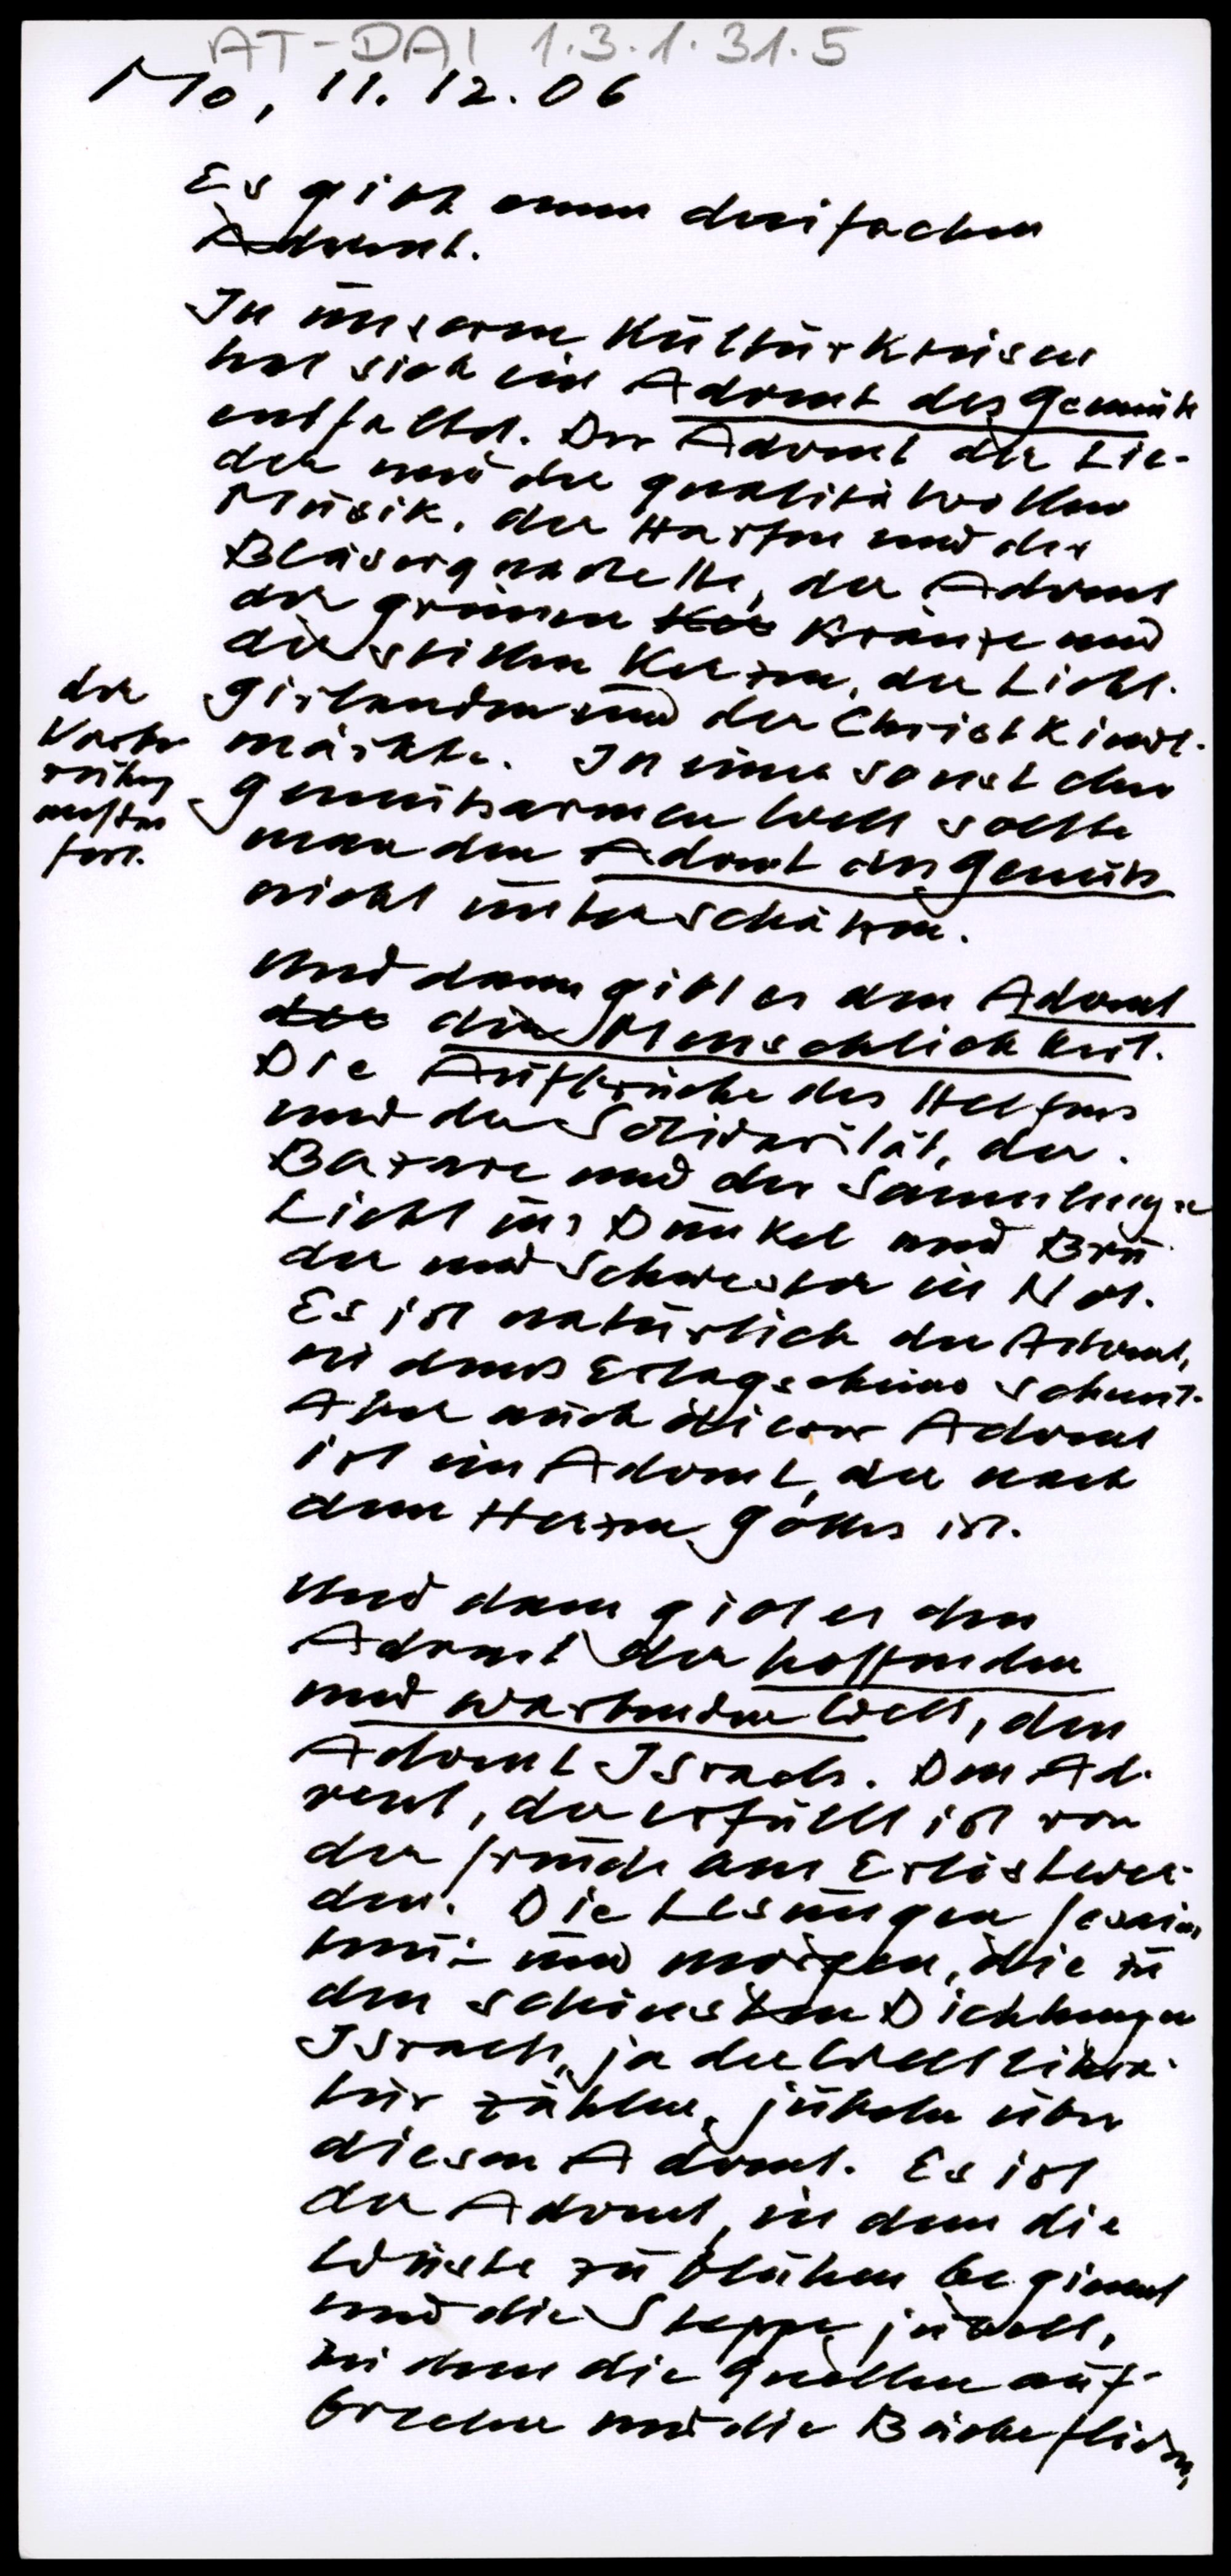 AT-DAI 1.3.1.31.5
Mo, 11.12.06
Es gibt einen dreifachen
Advent.
In unserem Kulturkreise
hat sich ein Advent des Gemüts
entfaltet. Der Advent der Lie-
der und der qualitätvollen
Musik, der Harfen und der
Bläserquartette, der Advent
der grünen Kränze und
der stillen Kerzen, der Licht-
girlanden und der Christkindl-
märkte. In einer sonst eher
gemütsarmen Welt sollte
man den Advent des Gemüts
nicht unterschätzen.
der
Vorbe-
reitung
auf das
Fest.
Und dann gibt es den Advent
der der Menschlichkeit.
Die Aufbrüche des Helfens
und der Solidarität, der
Bazare und der Sammlungen
Licht ins Dunkel und Bru-
der und Schwester in Not.
Es ist natürlich der Advent,
in dem's Erlagscheine schneit.
Aber auch dieser Advent
ist ein Advent, der nach
dem Herzen Gottes ist.
Und dann gibt es den
Advent der hoffenden
und wartenden Welt, den
Advent Israels. Den Ad-
vent, der erfüllt ist von
der Freude am Erlöstwer-
den. Die Lesungen Jesaia,
heute und morgen, die zu
den schönsten Dichtungen
Israels, ja der Weltlitera-
tur zählen, jubeln über
diesen Advent. Es ist
der Advent, in dem die
Wüste zu blühen beginnt
und die Steppe jubelt,
in dem die Quellen auf-
brechen und die Bäche fließen,